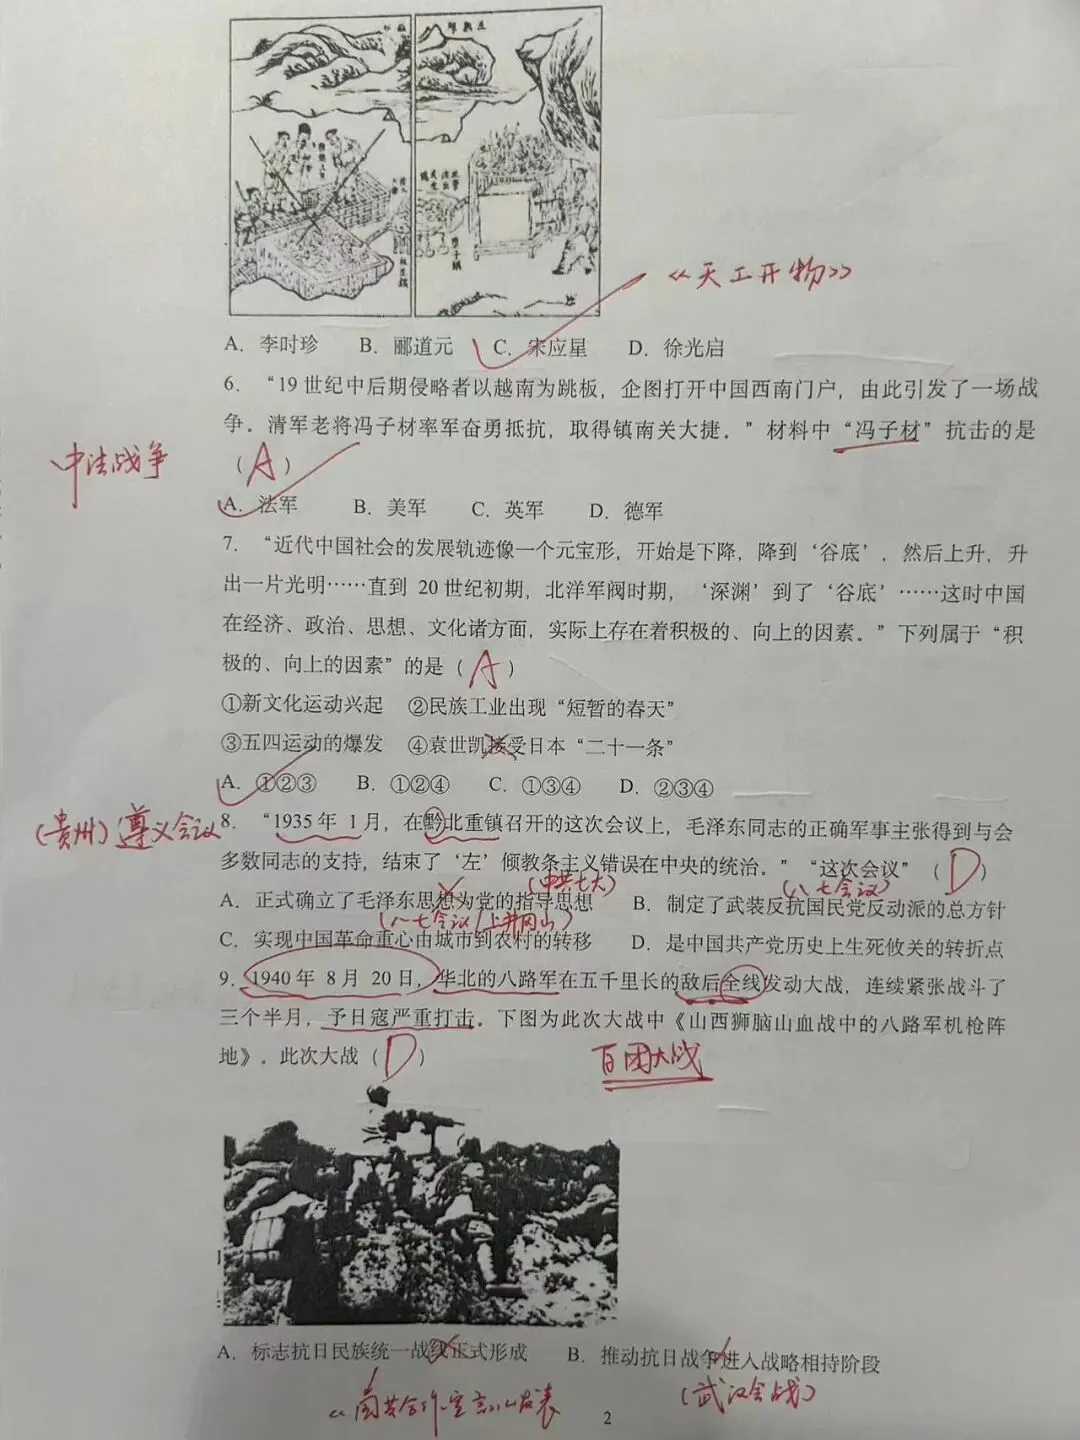 《天工开物》
A．李时珍 B．郦道元 C．宋应星 D．徐光启
6．“19世纪中后期侵略者以越南为跳板，企图打开中国西南门户，由此引发了一场战
争。清军老将冯子材率军奋勇抵抗，取得镇南关大捷。”材料中“冯子材”抗击的是
中法战争
（A）
A．法军 B．美军 C．英军 D．德军
7．“近代中国社会的发展轨迹像一个元宝形，开始是下降，降到‘谷底’，然后上升，升
出一片光明……直到 20世纪初期，北洋军阀时期，‘深渊’到了‘谷底’……这时中国
在经济、政治、思想、文化诸方面，实际上存在着积极的、向上的因素。”下列属于“积
极的、向上的因素”的是（A）
①新文化运动兴起 ②民族工业出现“短暂的春天”
③五四运动的爆发 ④袁世凯接受日本“二十一条”
A．①②③ B．①②④ C．①③④ D．②③④
（贵州）遵义会议
8．“1935年 1月，在黔北重镇召开的这次会议上，毛泽东同志的正确军事主张得到与会
多数同志的支持，结束了‘左’倾教条主义错误在中央的统治。”“这次会议”（D）
（中共七大） （八七会议）
A．正式确立了毛泽东思想为党的指导思想 B．制定了武装反抗国民党反动派的总方针
（八七会议/上井冈山）
C．实现中国革命重心由城市到农村的转移 D．是中国共产党历史上生死攸关的转折点
9．1940年 8月 20日，华北的八路军在五千里长的敌后全线发动大战，连续紧张战斗了
三个半月，予日寇严重打击。下图为此次大战中《山西狮脑山血战中的八路军机枪阵
地》。此次大战（D）
百团大战
A．标志抗日民族统一战线正式形成 B．推动抗日战争进入战略相持阶段
《国共合作宣言》发表
（武汉会战）
2